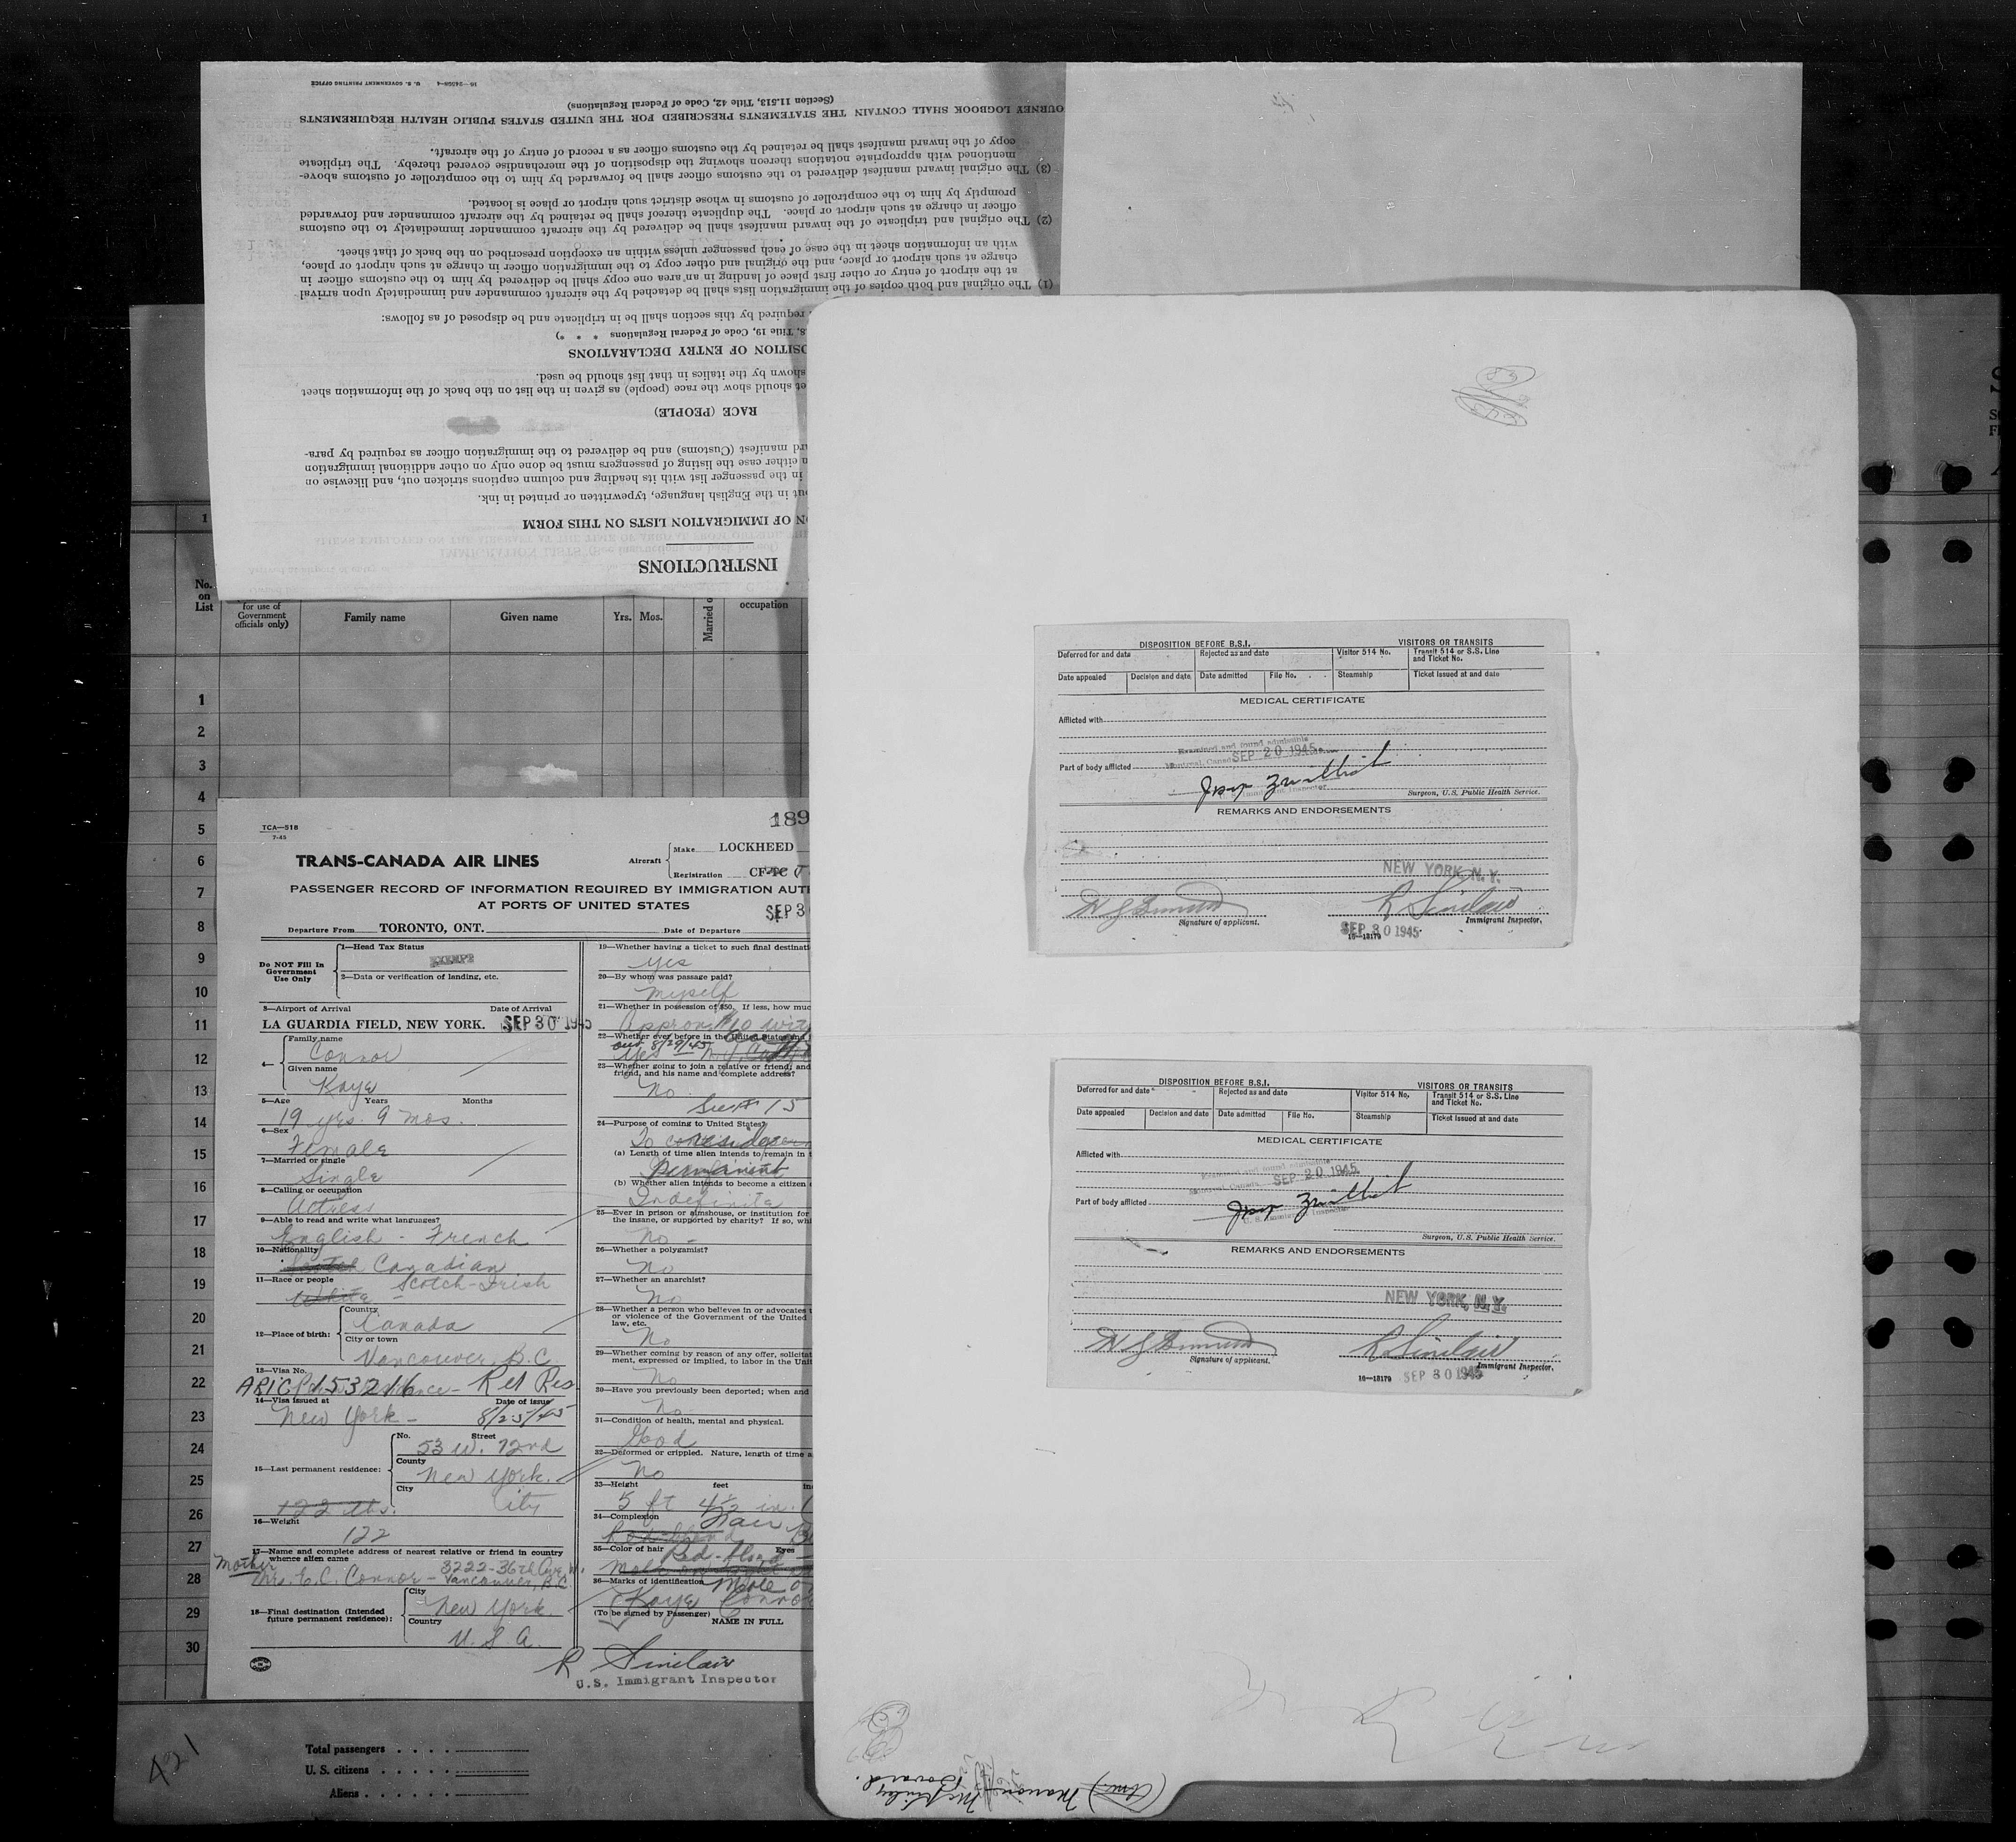 16—24598-4 U. S. GOVERNMENT PRINTING OFFICE
INSTRUCTIONS
N OF IMMIGRATION LISTS ON THIS FORM
out in the English language, typewritten or printed in ink.
in the passenger list with its heading and column captions stricken out, and likewise on
n either case the listing of passengers must be done only on other additional immigration
ard manifest (Customs) and be delivered to the immigration officer as required by para-
RACE (PEOPLE)
et should show the race (people) as given in the list on the back of the information sheet
shown by the italics in that list should be used.
OSITION OF ENTRY DECLARATIONS
8, Title 19, Code of Federal Regulations * * *)
required by this section shall be in triplicate and be disposed of as follows:
(1) The original and both copies of the immigration lists shall be detached by the aircraft commander and immediately upon arrival
at the airport of entry or other first place of landing in an area one copy shall be delivered by him to the customs officer in
charge at such airport or place, and the original and other copy to the immigration officer in charge at such airport or place,
with an information sheet in the case of each passenger unless within an exception prescribed on the back of that sheet.
(2) The original and triplicate of the inward manifest shall be delivered by the aircraft commander immediately to the customs
officer in charge at such airport or place. The duplicate thereof shall be retained by the aircraft commander and forwarded
promptly by him to the comptroller of customs in whose district such airport or place is located.
(3) The original inward manifest delivered to the customs officer shall be forwarded by him to the comptroller of customs above-
mentioned with appropriate notations thereon showing the disposition of the merchandise covered thereby. The triplicate
copy of the inward manifest shall be retained by the customs officer as a record of entry of the aircraft.
OURNEY LOGBOOK SHALL CONTAIN THE STATEMENTS PRESCRIBED FOR THE UNITED STATES PUBLIC HEALTH REQUIREMENTS
(Section 11.513, Title 42, Code of Federal Regulations)
1
No.
on
List
for use of
Government
officials only)
Family name
Given name
Yrs. Mos.
Married o
occupation
1
2
3
4
5
6
7
8
9
10
11
12
13
14
15
16
17
18
19
20
21
22
23
24
25
26
27
28
29
30
TCA—518
7-45
189
TRANS-CANADA AIR LINES
Aircraft
Make LOCKHEED
Registration CF-TC T
PASSENGER RECORD OF INFORMATION REQUIRED BY IMMIGRATION AUT
AT PORTS OF UNITED STATES
SEP 3
Departure From TORONTO, ONT. Date of Departure
Do NOT Fill In
Government
Use Only
1—Head Tax Status
EXEMPT
2—Data or verification of landing, etc.
3—Airport of Arrival Date of Arrival
LA GUARDIA FIELD, NEW YORK. SEP 30 1945
4—
Family name
Connor
Given name
Kaye
5—Age Years Months
19 yrs. 9 mos.
6—Sex
Female
7—Married or single
Single
8—Calling or occupation
Actress
9—Able to read and write what languages?
English - French
10—Nationality
Scotch Canadian
11—Race or people
White - Scotch-Irish
12—Place of birth:
Country
Canada
City or town
Vancouver, B.C.
13—Visa No.
ARIC 153216 Ret Res
14—Visa issued at Date of issue
New York - 8/25/45
15—Last permanent residence:
No. Street
53 W. 72nd
County
New York.
City
City
122 lbs.
16—Weight
122
17—Name and complete address of nearest relative or friend in country
whence alien came
Mother
Mrs. E.C. Connor - 3222-36th Ave. W.
Vancouver, B.C.
18—Final destination (Intended
future permanent residence):
City
New York.
Country
U.S.A.
19—Whether having a ticket to such final destinati
yes
20—By whom was passage paid?
myself
21—Whether in possession of $50. If less, how muc
Approx. $10 wit
22—Whether ever before in the United States and
out 8/29/45
Yes N.Y.
23—Whether going to join a relative or friend; and
friend, and his name and complete address?
No
See # 15
24—Purpose of coming to United States?
To reside
(a) Length of time alien intends to remain in t
Permanent
(b) Whether alien intends to become a citizen
Indefinite
25—Ever in prison or almshouse, or institution for
the insane, or supported by charity? If so, whi
No -
26—Whether a polygamist?
No
27—Whether an anarchist?
No
28—Whether a person who believes in or advocates t
or violence of the Government of the United
law, etc.
No
29—Whether coming by reason of any offer, solicitat
ment, expressed or implied, to labor in the Unit
No
30—Have you previously been deported; when and
No
31—Condition of health, mental and physical.
Good
32—Deformed or crippled. Nature, length of time a
No
33—Height feet in
5 ft 4½ in.
34—Complexion
Fair
35—Color of hair Eyes
Red-blond -
36—Marks of identification
Mole o
Kaye Conno
(To be signed by Passenger) NAME IN FULL
R Sinclair
U.S. Immigrant Inspector
421
Total passengers
U. S. citizens
Aliens
DISPOSITION BEFORE B.S.I. VISITORS OR TRANSITS
Deferred for and date Rejected as and date Visitor 514 No. Transit 514 or S.S. Line
and Ticket No.
Date appealed Decision and date Date admitted File No. Steamship Ticket issued at and date
MEDICAL CERTIFICATE
Afflicted with
Examined and found admissible
Montreal, Canada SEP 20 1945
Part of body afflicted
U.S. Immigrant Inspector
Surgeon, U.S. Public Health Service.
REMARKS AND ENDORSEMENTS
NEW YORK, N.Y.
R Sinclair
Signature of applicant. Immigrant Inspector.
SEP 30 1945
16—13179
DISPOSITION BEFORE B.S.I. VISITORS OR TRANSITS
Deferred for and date Rejected as and date Visitor 514 No. Transit 514 or S.S. Line
and Ticket No.
Date appealed Decision and date Date admitted File No. Steamship Ticket issued at and date
MEDICAL CERTIFICATE
Afflicted with
Examined and found admissible
Montreal, Canada SEP 20 1945
Part of body afflicted
U.S. Immigrant Inspector
Surgeon, U.S. Public Health Service.
REMARKS AND ENDORSEMENTS
NEW YORK, N.Y.
R Sinclair
Signature of applicant. Immigrant Inspector.
16—13179 SEP 30 1945